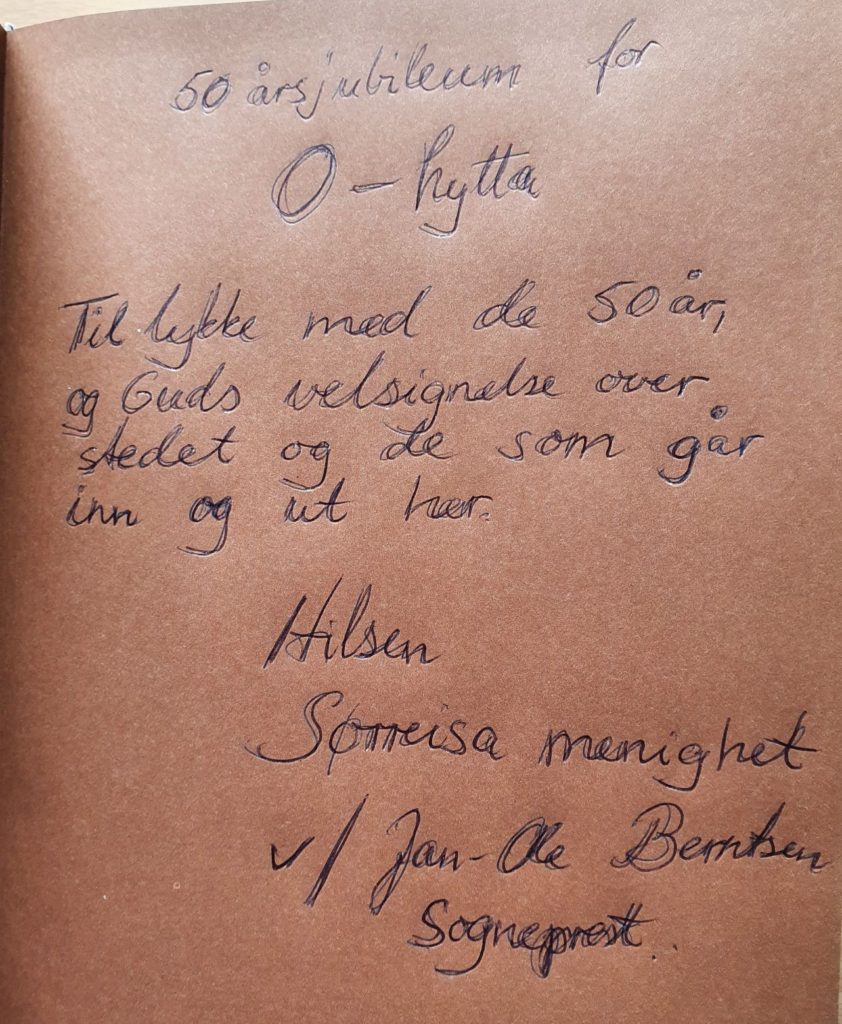 50 årsjubileum for
O - hytta
Til lykke med de 50 år,
og Guds velsignelse over
stedet og de som går
inn og ut her.
Hilsen
Sørreisa menighet
v/ Jan-Ole Berntsen
Sogneprest.